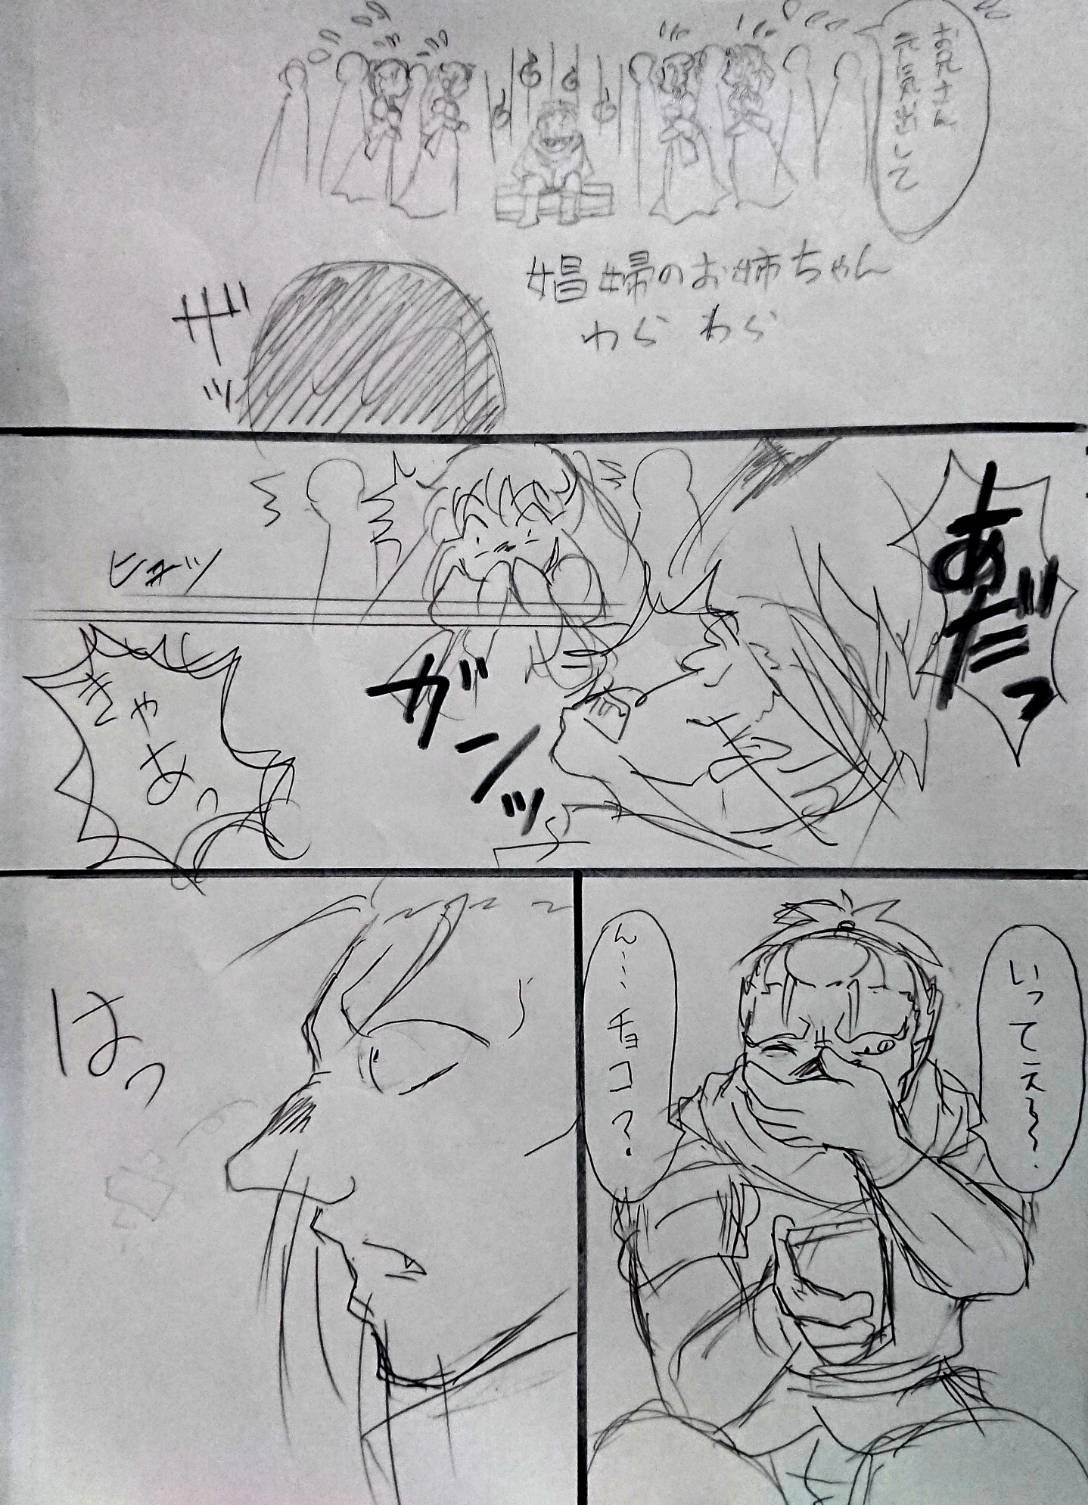 お兄さん
元気出して
娼婦のお姉ちゃん
わらわら
ザッ
あだっ
ガンッ
ヒューッ
きゃあっ
いってえ〜〜.
ん……チョコ?
はっ